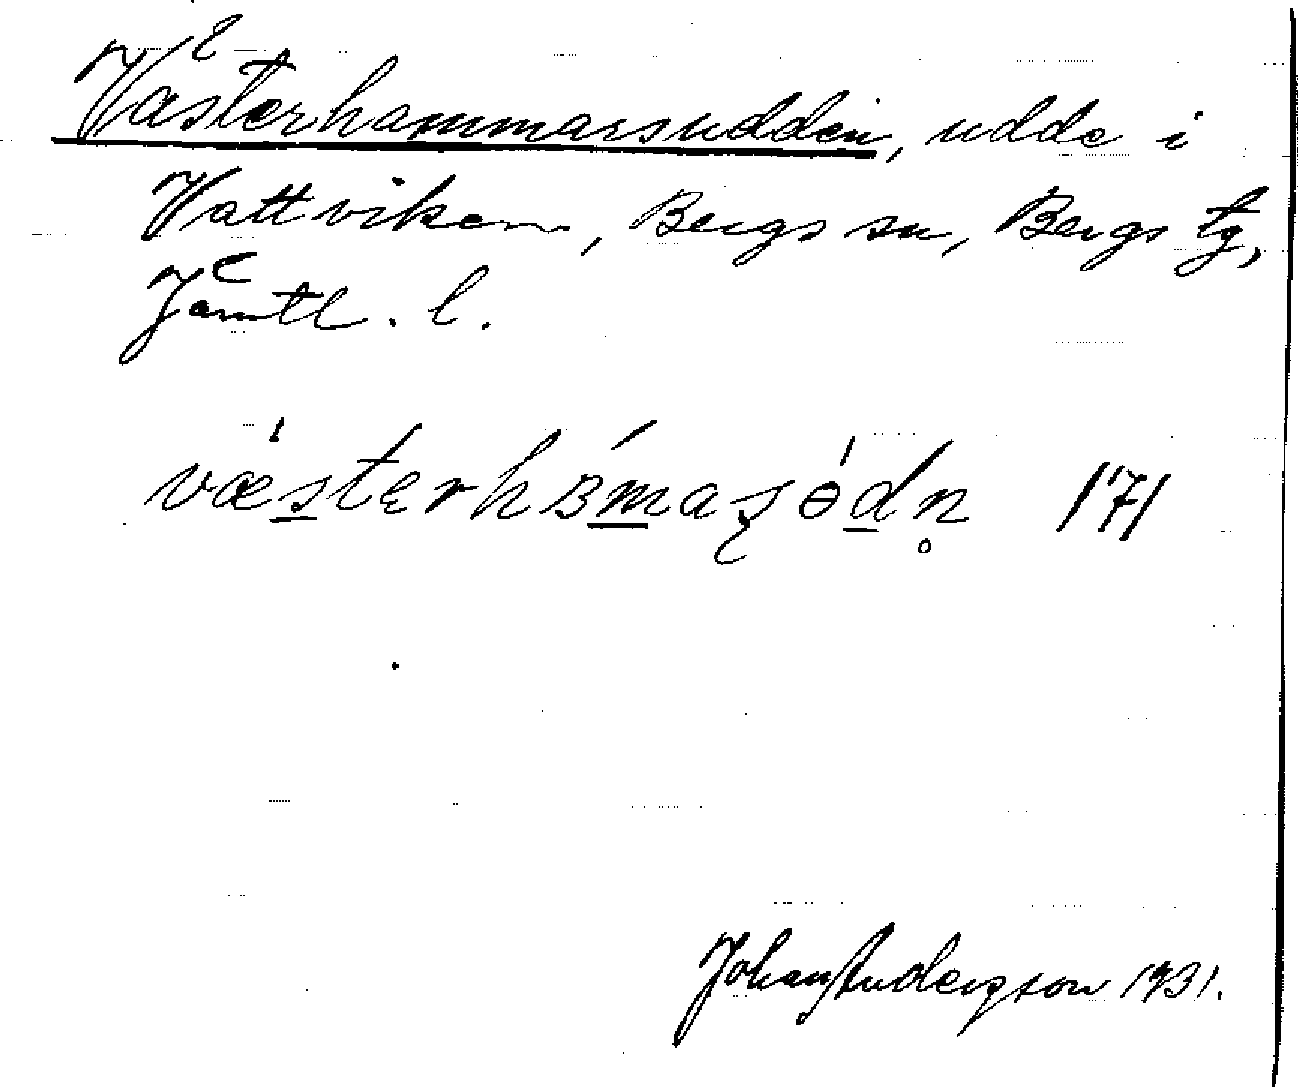 Västerhammarsudden, udde i
Hattviken, Bergs sn, Bergs tg,
Jämtl. l.
væsterhʙmaʂɵdn̥ 171
Johan Anderson 1931.